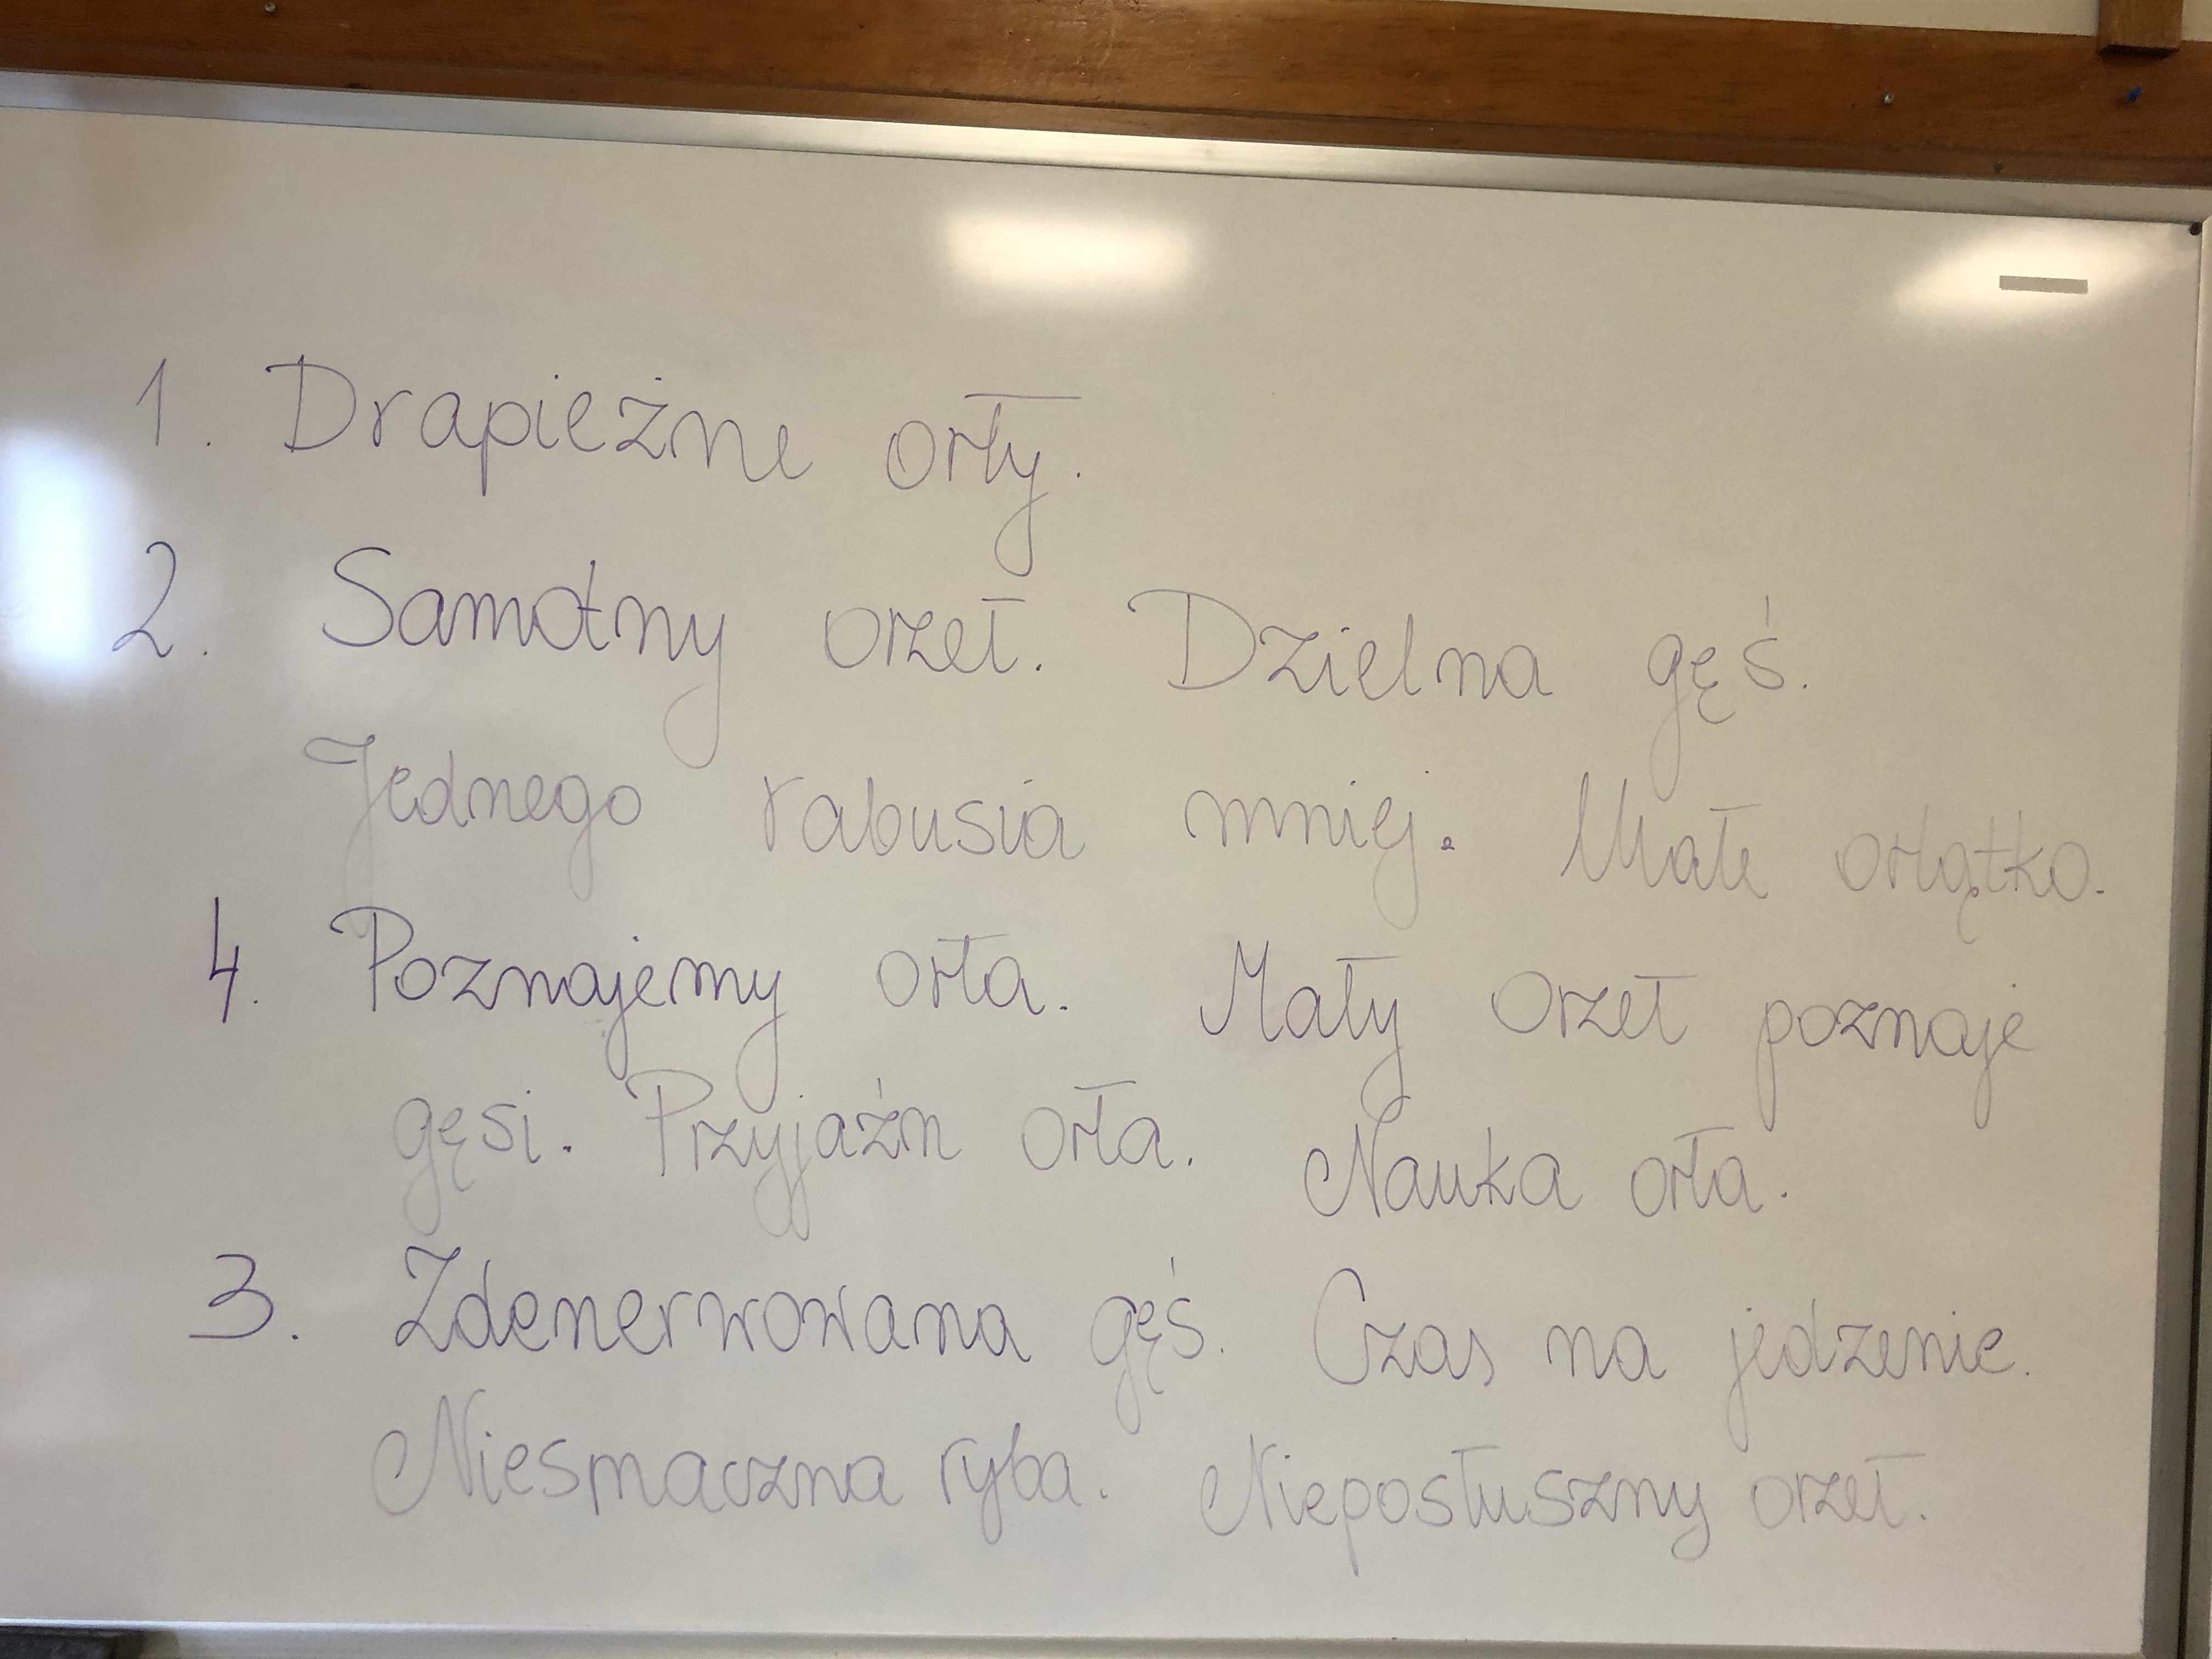 1. Drapieżne orły.
2. Samotny orzeł. Dzielna gęś.
Jednego rabusia mniej. Małe orlątko.
4. Poznajemy orła. Mały orzeł poznaje
gęsi. Przyjaźń orła. Nauka orła.
3. Zdenerwowana gęś. Czas na jedzenie.
Niesmaczna ryba. Nieposłuszny orzeł.